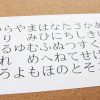 らやまはなたさか
り みひにちしき
るゆむふぬつすく
れ めへねてせけ
ろよもほのとそこ